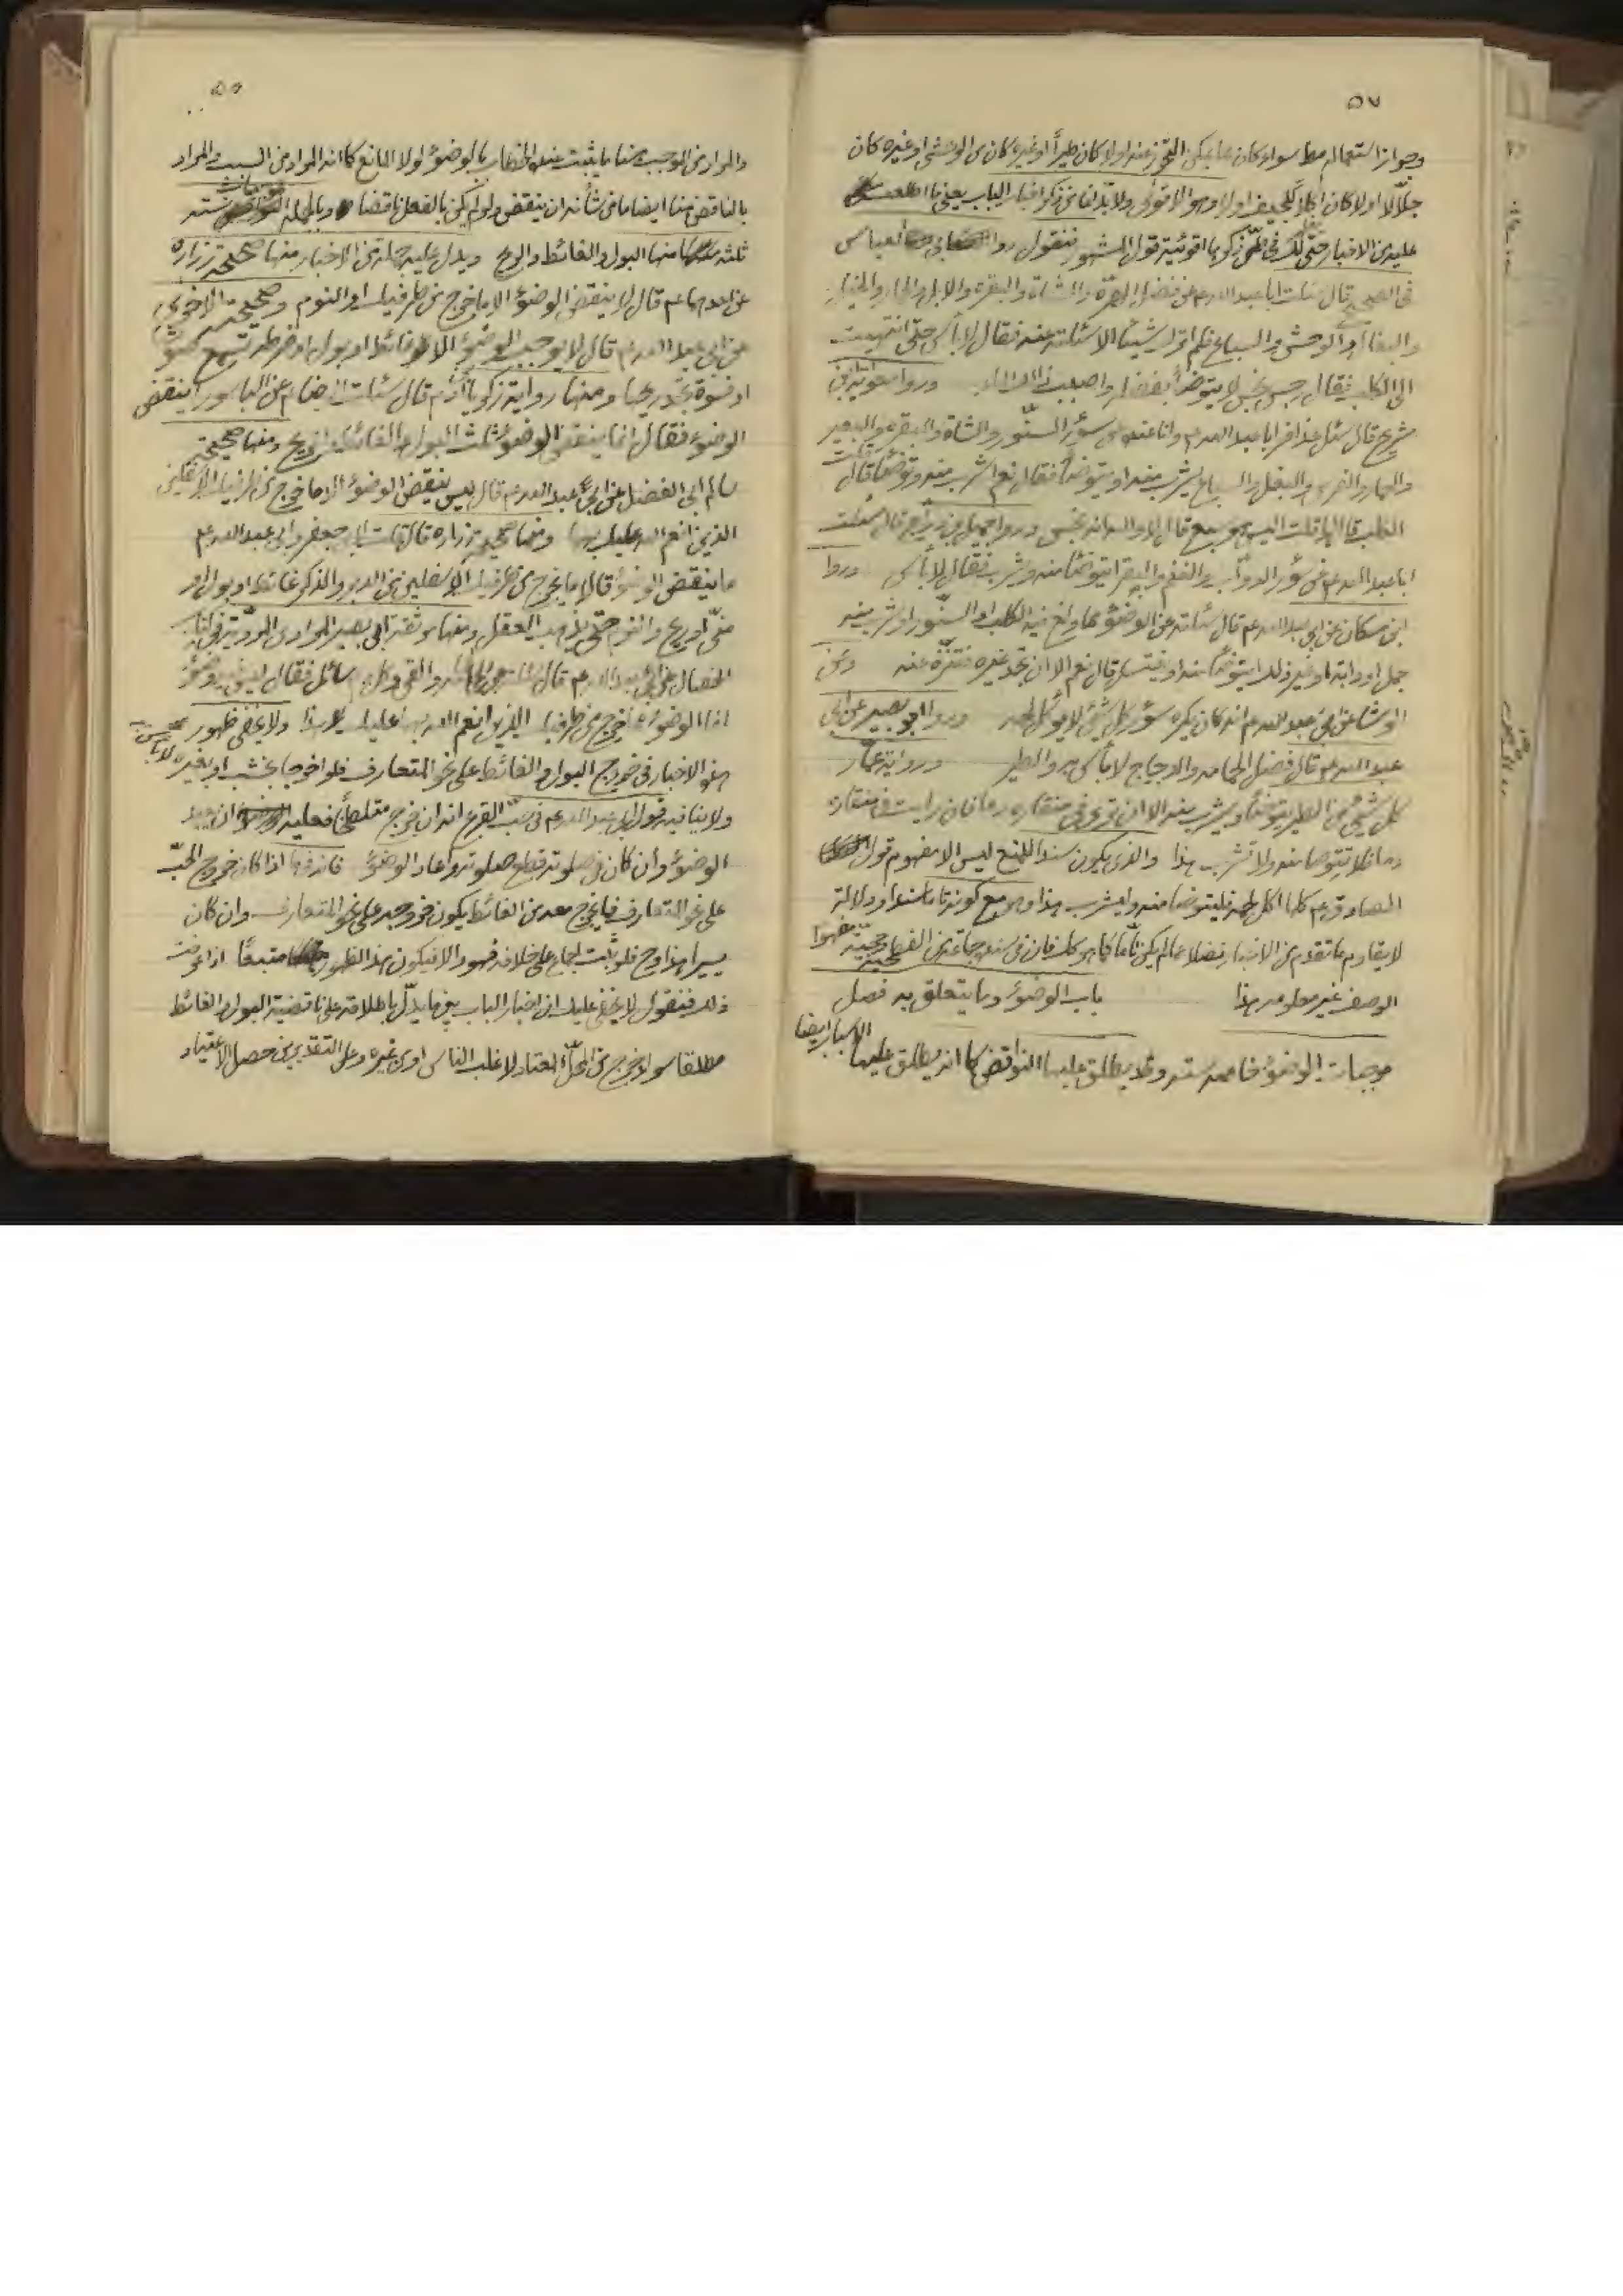 ٥٧
وجواز استعماله مط سواء كان مما يمكن التحرز عنه اولا كان طيراً او غيره كان من الوحشي او غيره كان
جلّالا اولا كان اكلا للجيف اولا وهو الاقوى ولابد لنا من ذكر اخبار الباب يعني ما اطلعت
عليه من الاخبار حتى لك في طي ذكرها اقوئية قول المشهور فنقول روا العباس
في الصحيح قال سئلت ابا عبد الله عم عن فضل الهرّة والشاة والبقرة والابل والحمار والخيل
والبغال والوحش والسباع فلم اترك شيئا الا سئلته عنه فقال لا بأس حتى انتهيت
الى الكلب فقال رجس نجس لا يتوضأ بفضله واصبب ذلك الماء وروا معوية بن
شريح قال سئل عذافر ابا عبد الله عم وانا عنده عن سؤر السنّور والشاة والبقرة والبعير
والحمار والفرس والبغل والسباع يشرب منه او يتوضأ فقال نعم اشرب منه وتوضأ قال قلت
الكلب قال لا قلت اليس هو سبع قال لا والله انه نجس وروا جميل بن درّاج قال سئلت
ابا عبد الله عم عن سؤر الدوابّ والغنم والبقر ايتوضأ منه ويشرب فقال لا بأس وروا
ابن مسكان عن ابي عبد الله عم قال سئلته عن الوضوء مما ولغ فيه الكلب والسنّور او شرب منه
جمل او دابة او غير ذلك ايتوضأ منه او يغتسل قال نعم الا ان تجد غيره فتنزّه عنه وعن
الوشا عن ابي عبد الله عم انه كان يكره سؤر كل شئ لا يؤكل لحمه وروا ابو بصير عن ابي
عبد الله عم قال فضل الحمامه والدجاج لا بأس به والطير ورواية عمّار
كل شئ من الطير يتوضأ ويشرب منه الا ان ترى في منقاره دما فان رايت في منقاره
دما فلا تتوضا منه ولا تشرب هذا والذي يكون سندا للمنع ليس الا مفهوم قول
الصادق عم كلما اكل لحمه فليتوضا منه وليشرب هذا وهو مع كونه قاصرا سندا ودلالة
لا يقاوم ما تقدم من الاخبار فضلا عما لم يكن تامّا كما هو كك فان في سنده جماعة من الفطحية وحجيّة مفهوم
الوصف غير معلومه هذا باب الوضوء وما يتعلق به فصل
موجبات الوضوء خاصه سته وقد يطلق عليها النواقض كما انه يطلق عليها الاسباب ايضا
والمراد من الموجب هنا ما يثبت عنده الخطاب بالوضوء لولا المانع كما انه المراد من السبب والمراد
بالناقض هنا ايضا ما من شأنه ان ينقض ولو لم يكن بالفعل ناقضا وبالجمله الموجبات سته
ثلثه منها البول والغائط والريح ويدل عليه جملة من الاخبار منها صحيحة زراره
عن احدهما عم قال لا ينقض الوضوء الا ما خرج من طرفيك او النوم وصحيحته الاخرى
عن ابي عبد الله عم قال لا يوجب الوضوء الا غائط او بول او ضرطه تسمع صوتها
او فسوة تجد ريحها ومنها رواية زكريا بن آدم قال سئلت الرضا عم عن الناسور اينقض
الوضوء فقال انما ينقض الوضوء ثلث البول والغائط والريح ومنها صحيحة
سالم ابي الفضل عن ابي عبد الله عم قال ليس ينقض الوضوء الا ما خرج من طرفيك الاسفلين
الذين انعم الله عليك بهما ومنها صحيحة زراره قال قلت لابي جعفر وابي عبد الله عم
ما ينقض الوضوء قالا ما يخرج من طرفيك الاسفلين من الدبر والذكر غائط او بول او
منّي او ريح والنوم حتى يذهب العقل ومنها موثقة ابي بصير المرادي المرويّة في كتاب
الخصال عن ابي عبد الله عم قال سئلته عن الحجامه والقئ وكل دم سائل فقال ليس فيه وضوء
انما الوضوء مما خرج من طرفيك الذين انعم الله بهما عليك هذا ولا يخفى ظهور
هذه الاخبار في خروج البول والغائط على نحو المتعارف فلو اخرجا بخشب او بغيره لا بأس به
ولا ينافيه قول ابي عبد الله عم في حبّ القرع انه ان خرج متلطخاً فعليه ان يعيد
الوضوء وان كان في صلوته قطع صلوته واعاد الوضوء فانه فيما اذا كان خروج الحبّ
على نحو المتعارف فما يخرج معه من الغائط يكون خروجه على نحو المتعارف وان كان
يسيرا هذا وح فلو ثبت اجماع على خلافه فهو والا فيكون هذا الظهور متبعًا اذا عرفت
ذلك فنقول لا يخفى عليك ان اخبار الباب بعضها يدلّ باطلاقه على ناقضية البول والغائط
مطلقا سواء خرج من المحلّ المعتاد لاغلب الناس او من غيره وعلى التقديرين حصل الاعتياد